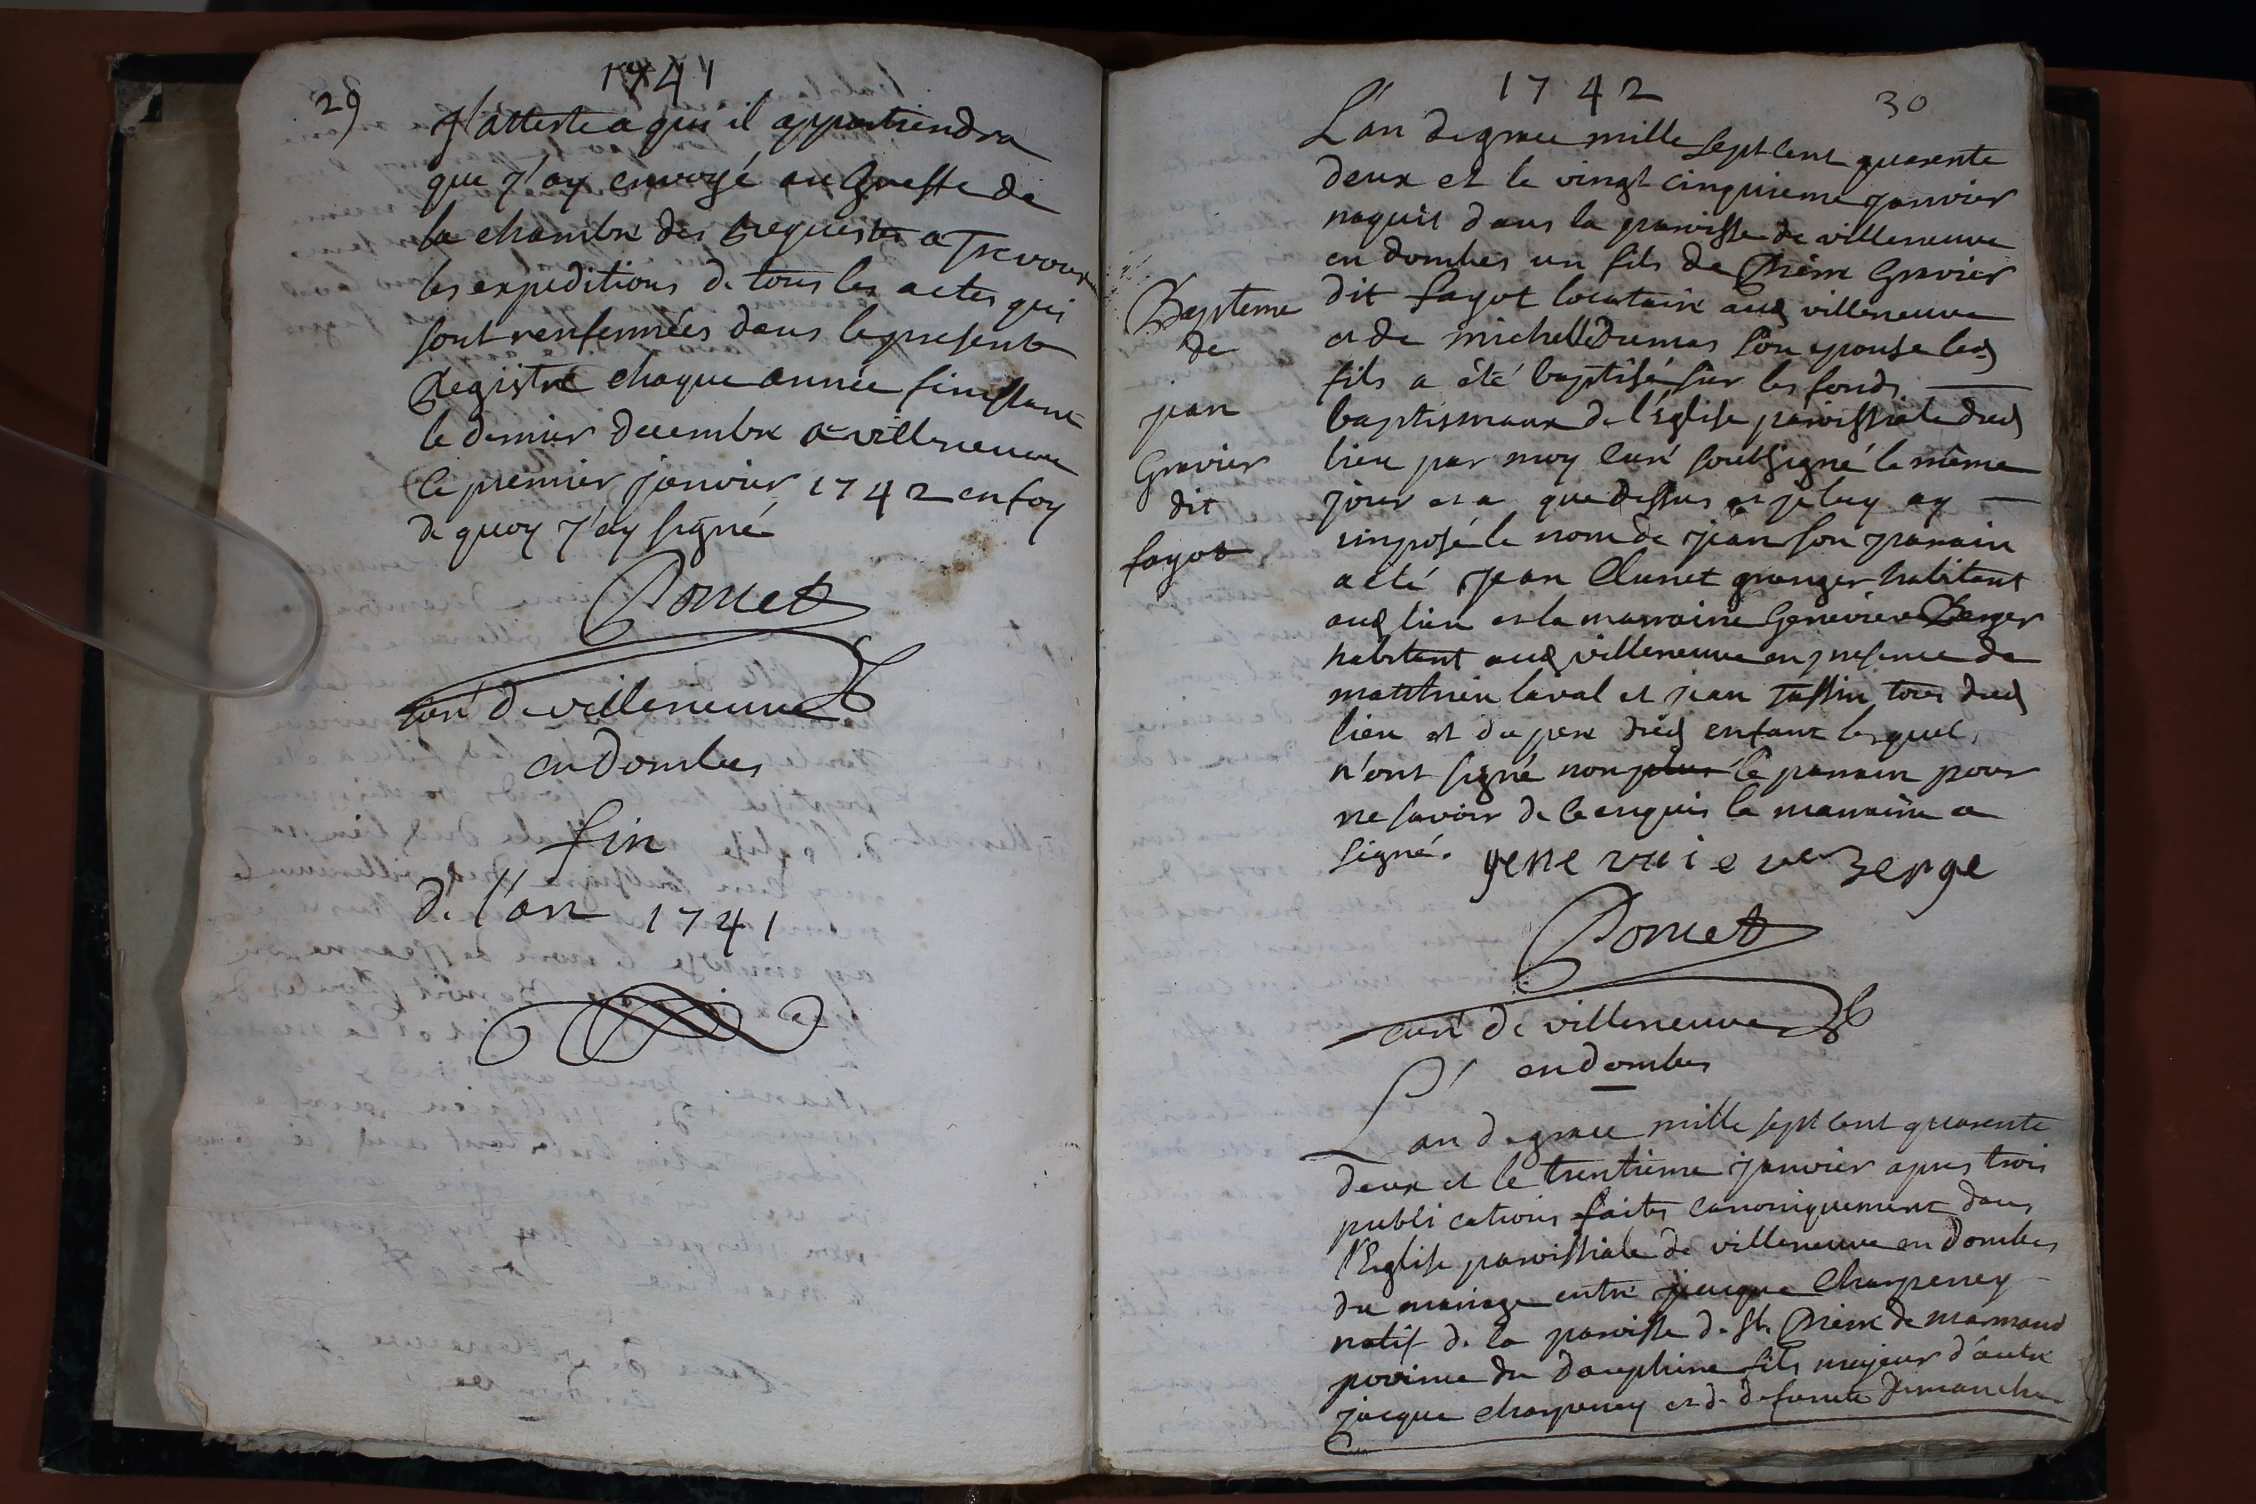 29
1741
J'atteste a qui il appartiendra
que j'ay envoyé au Greffe de
la chambre des Requestes a Trevoux
les expeditions de tous les actes qui
sont renfermées dans le present
Registre chaque année finissant
le dernier decembre a villeneuve
le premier janvier 1742 en foy
de quoy j'ay signé
Pomet
curé de villeneuve
en Dombes
fin
de l'an 1741
1742
30
L'an de grace mille sept cent quarente
deux et le vingt cinquieme janvier
naquit dans la paroisse de villeneuve
en dombes un fils de Pierre Gravier
dit fagot locataire aud villeneuve
et de michelle Dumas son epouse led
fils a été baptisé sur les fonds
baptismaux de l'Eglise paroissiale dud
lieu par moy curé soussigné le même
jour et a que dessus et je luy ay
imposé le nom de jean son parain
a été jean Clunet granger habitant
aud lieu et la marraine Genevieve Berger
habitant aud villeneuve en presence de
matthieu laval et jean tassin tous dud
lieu et du pere dud enfant lesquels
n'ont signé non plus le parain pour
ne savoir de ce enquis la marraine a
signé. gene vuie ve berge
Pomet
curé de villeneuve
en dombes
Bapteme
de
jean
Gravier
dit
fagot
L'an de grace mille sept cent quarente
deux et le trentieme janvier apres trois
publications faites canoniquement dans
l'Eglise paroissiale de villeneuve en Dombes
du mariage entre jacque Charpeney
natif de la paroisse de St. Pierre de marnand
province du dauphine fils majeur d'autre
jacque charpeney et de defunte Dimanche